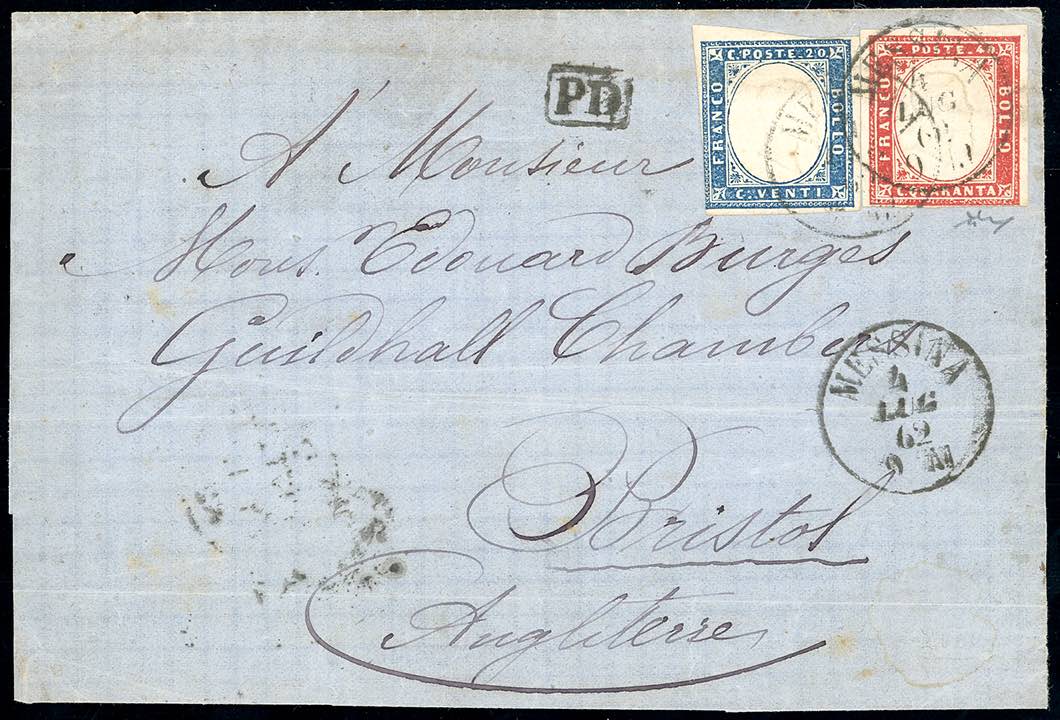 C. POSTE. 20
FRANCO
BOLLO
C. VENTI.
POSTE. 40
FRANCO
BOLLO
MESSINA
4
LUG
62
PD
A' Monsieur
Mons. Edouard Burges
Guildhall Chambers
MESSINA
4
LUG
62
9 M
Bristol
Angleterre